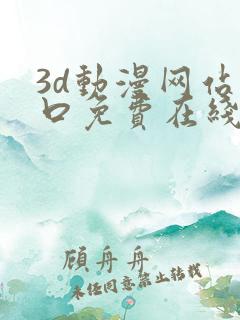 3d動漫网站
口免費在綫
顾舟舟
未任同意禁止转载